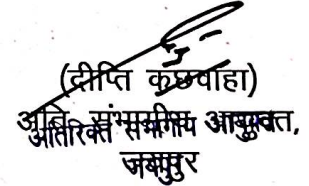 (दीप्ति कछवाहा)
अति. संभागीय आयुक्त,
अतिरिक्त संभागीय आयुक्त
जयपुर